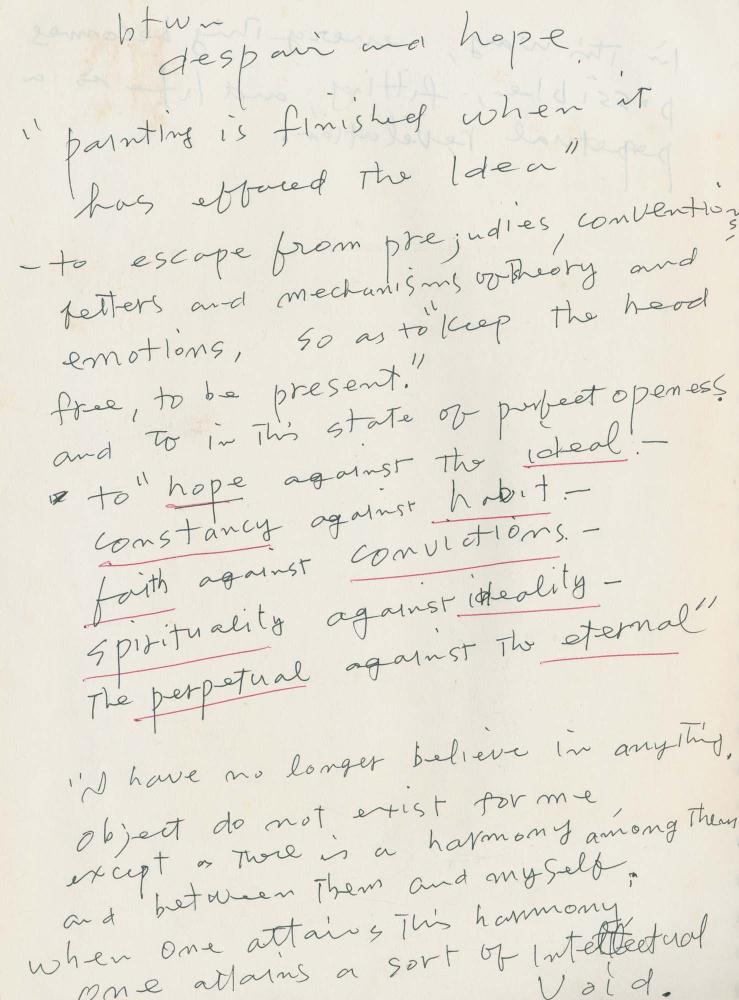 btwn
despair and hope.
"painting is finished when it
has effaced the Idea"
- to escape from prejudies, conventions,
fetters and mechanisms of Theory and
emotions, so as to "Keep the head
free, to be present."
and to in This state of perfect openess
to "hope against the ideal. -
constancy against habit. -
faith against convictions. -
spirituality against ideality -
The perpetual against The eternal"
"I have no longer believe in anyThing.
Object do not exist for me
except as There is a harmony among Them
and between Them and myself.
when one attains This harmony
one attains a sort of Intellectual
Void.